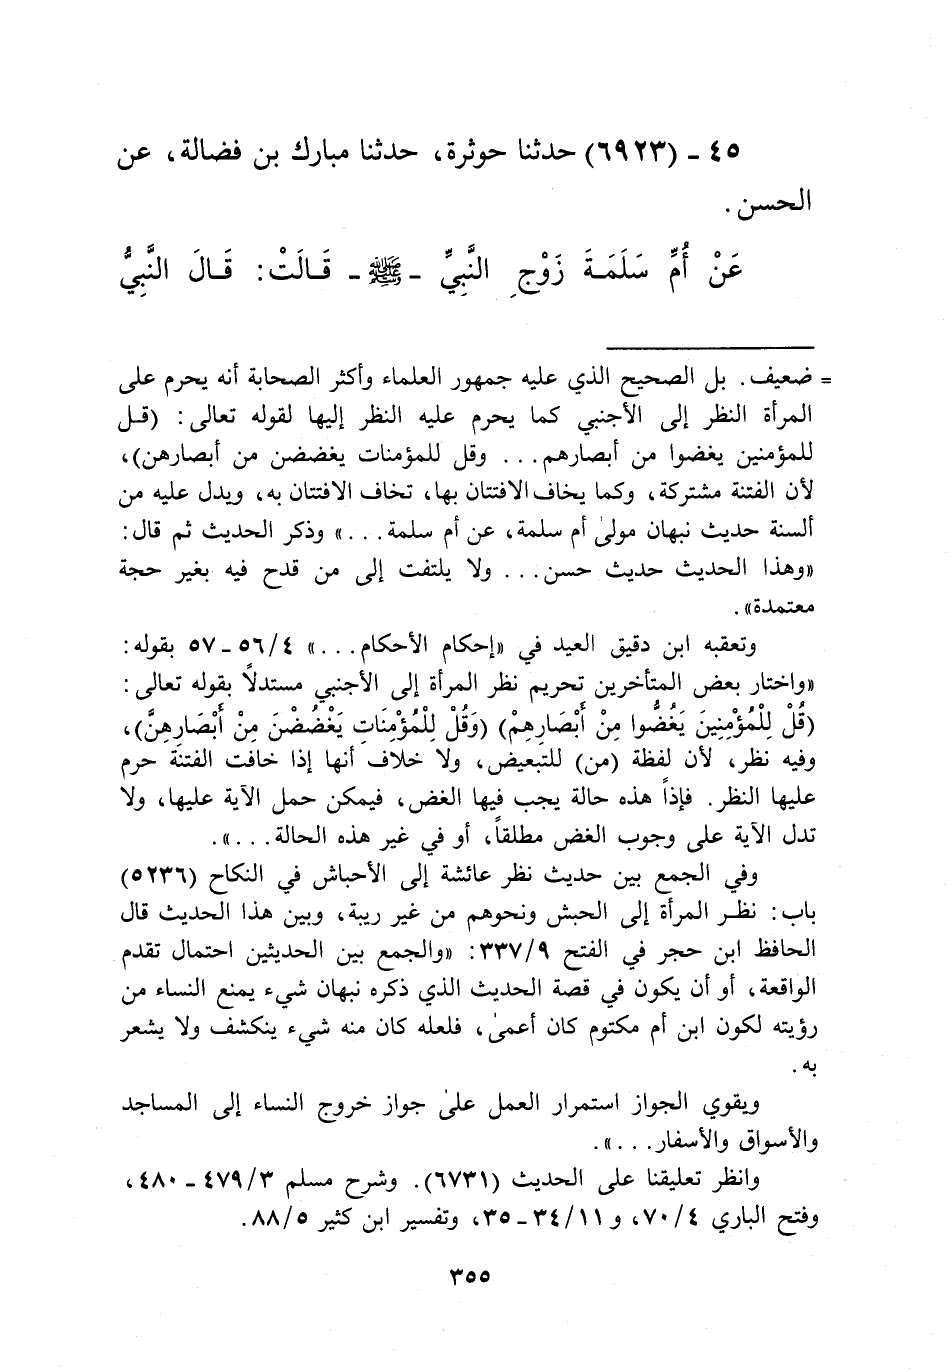 ٤٥ - (٦٩٢٣) حدثنا حوثرة، حدثنا مبارك بن فضالة، عن
الحسن.
عَنْ أُمِّ سَلَمَةَ زَوْجِ النَّبِيِّ - ﷺ - قَالَتْ: قَالَ النَّبِيُّ
= ضعيف. بل الصحيح الذي عليه جمهور العلماء وأكثر الصحابة أنه يحرم على
المرأة النظر إلى الأجنبي كما يحرم عليه النظر إليها لقوله تعالى: (قل
للمؤمنين يغضوا من أبصارهم... وقل للمؤمنات يغضضن من أبصارهن)،
لأن الفتنة مشتركة، وكما يخاف الافتتان بها، تخاف الافتتان به، ويدل عليه من
ألسنة حديث نبهان مولىٰ أم سلمة، عن أم سلمة...» وذكر الحديث ثم قال:
«وهذا الحديث حديث حسن... ولا يلتفت إلى من قدح فيه بغير حجة
معتمدة».
وتعقبه ابن دقيق العيد في «إحكام الأحكام...» ٥٦/٤ - ٥٧ بقوله:
«واختار بعض المتأخرين تحريم نظر المرأة إلى الأجنبي مستدلاً بقوله تعالى:
(قُلْ لِلْمُؤْمِنِينَ يَغُضُّوا مِنْ أَبْصَارِهِمْ) (وَقُلْ لِلْمُؤْمِنَاتِ يَغْضُضْنَ مِنْ أَبْصَارِهِنَّ)،
وفيه نظر، لأن لفظة (من) للتبعيض، ولا خلاف أنها إذا خافت الفتنة حرم
عليها النظر. فإذاً هذه حالة يجب فيها الغض، فيمكن حمل الآية عليها، ولا
تدل الآية على وجوب الغض مطلقاً، أو في غير هذه الحالة...».
وفي الجمع بين حديث نظر عائشة إلى الأحباش في النكاح (٥٢٣٦)
باب: نظر المرأة إلى الحبش ونحوهم من غير ريبة، وبين هذا الحديث قال
الحافظ ابن حجر في الفتح ٣٣٧/٩: «والجمع بين الحديثين احتمال تقدم
الواقعة، أو أن يكون في قصة الحديث الذي ذكره نبهان شيء يمنع النساء من
رؤيته لكون ابن أم مكتوم كان أعمىٰ، فلعله كان منه شيء ينكشف ولا يشعر
به.
ويقوي الجواز استمرار العمل علىٰ جواز خروج النساء إلى المساجد
والأسواق والأسفار...».
وانظر تعليقنا على الحديث (٦٧٣١). وشرح مسلم ٤٧٩/٣ - ٤٨٠،
وفتح الباري ٧٠/٤، و ٣٤/١١ - ٣٥، وتفسير ابن كثير ٨٨/٥.
٣٥٥